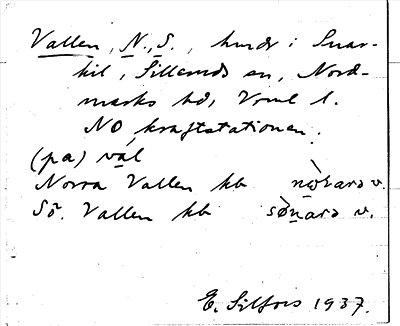 Vallen, N., S., hmdr i Snar-
kil, Silleruds sn, Nord-
marks hd, Vrml l.
NO kraftstationen.
(pa) val
Norra Vallen kb nørarə v.
Sö. Vallen kb sønarə v.
E. Silfors 1937.